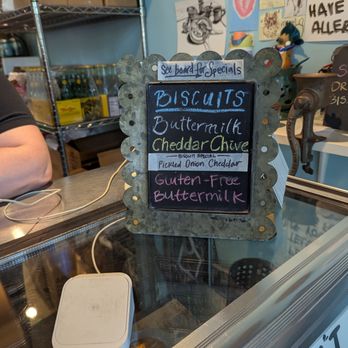 HAVE
ALLER
See board for Specials
BISCUITS
Buttermilk
Cheddar Chive
Pickled Onion Cheddar
Gluten-Free
Buttermilk